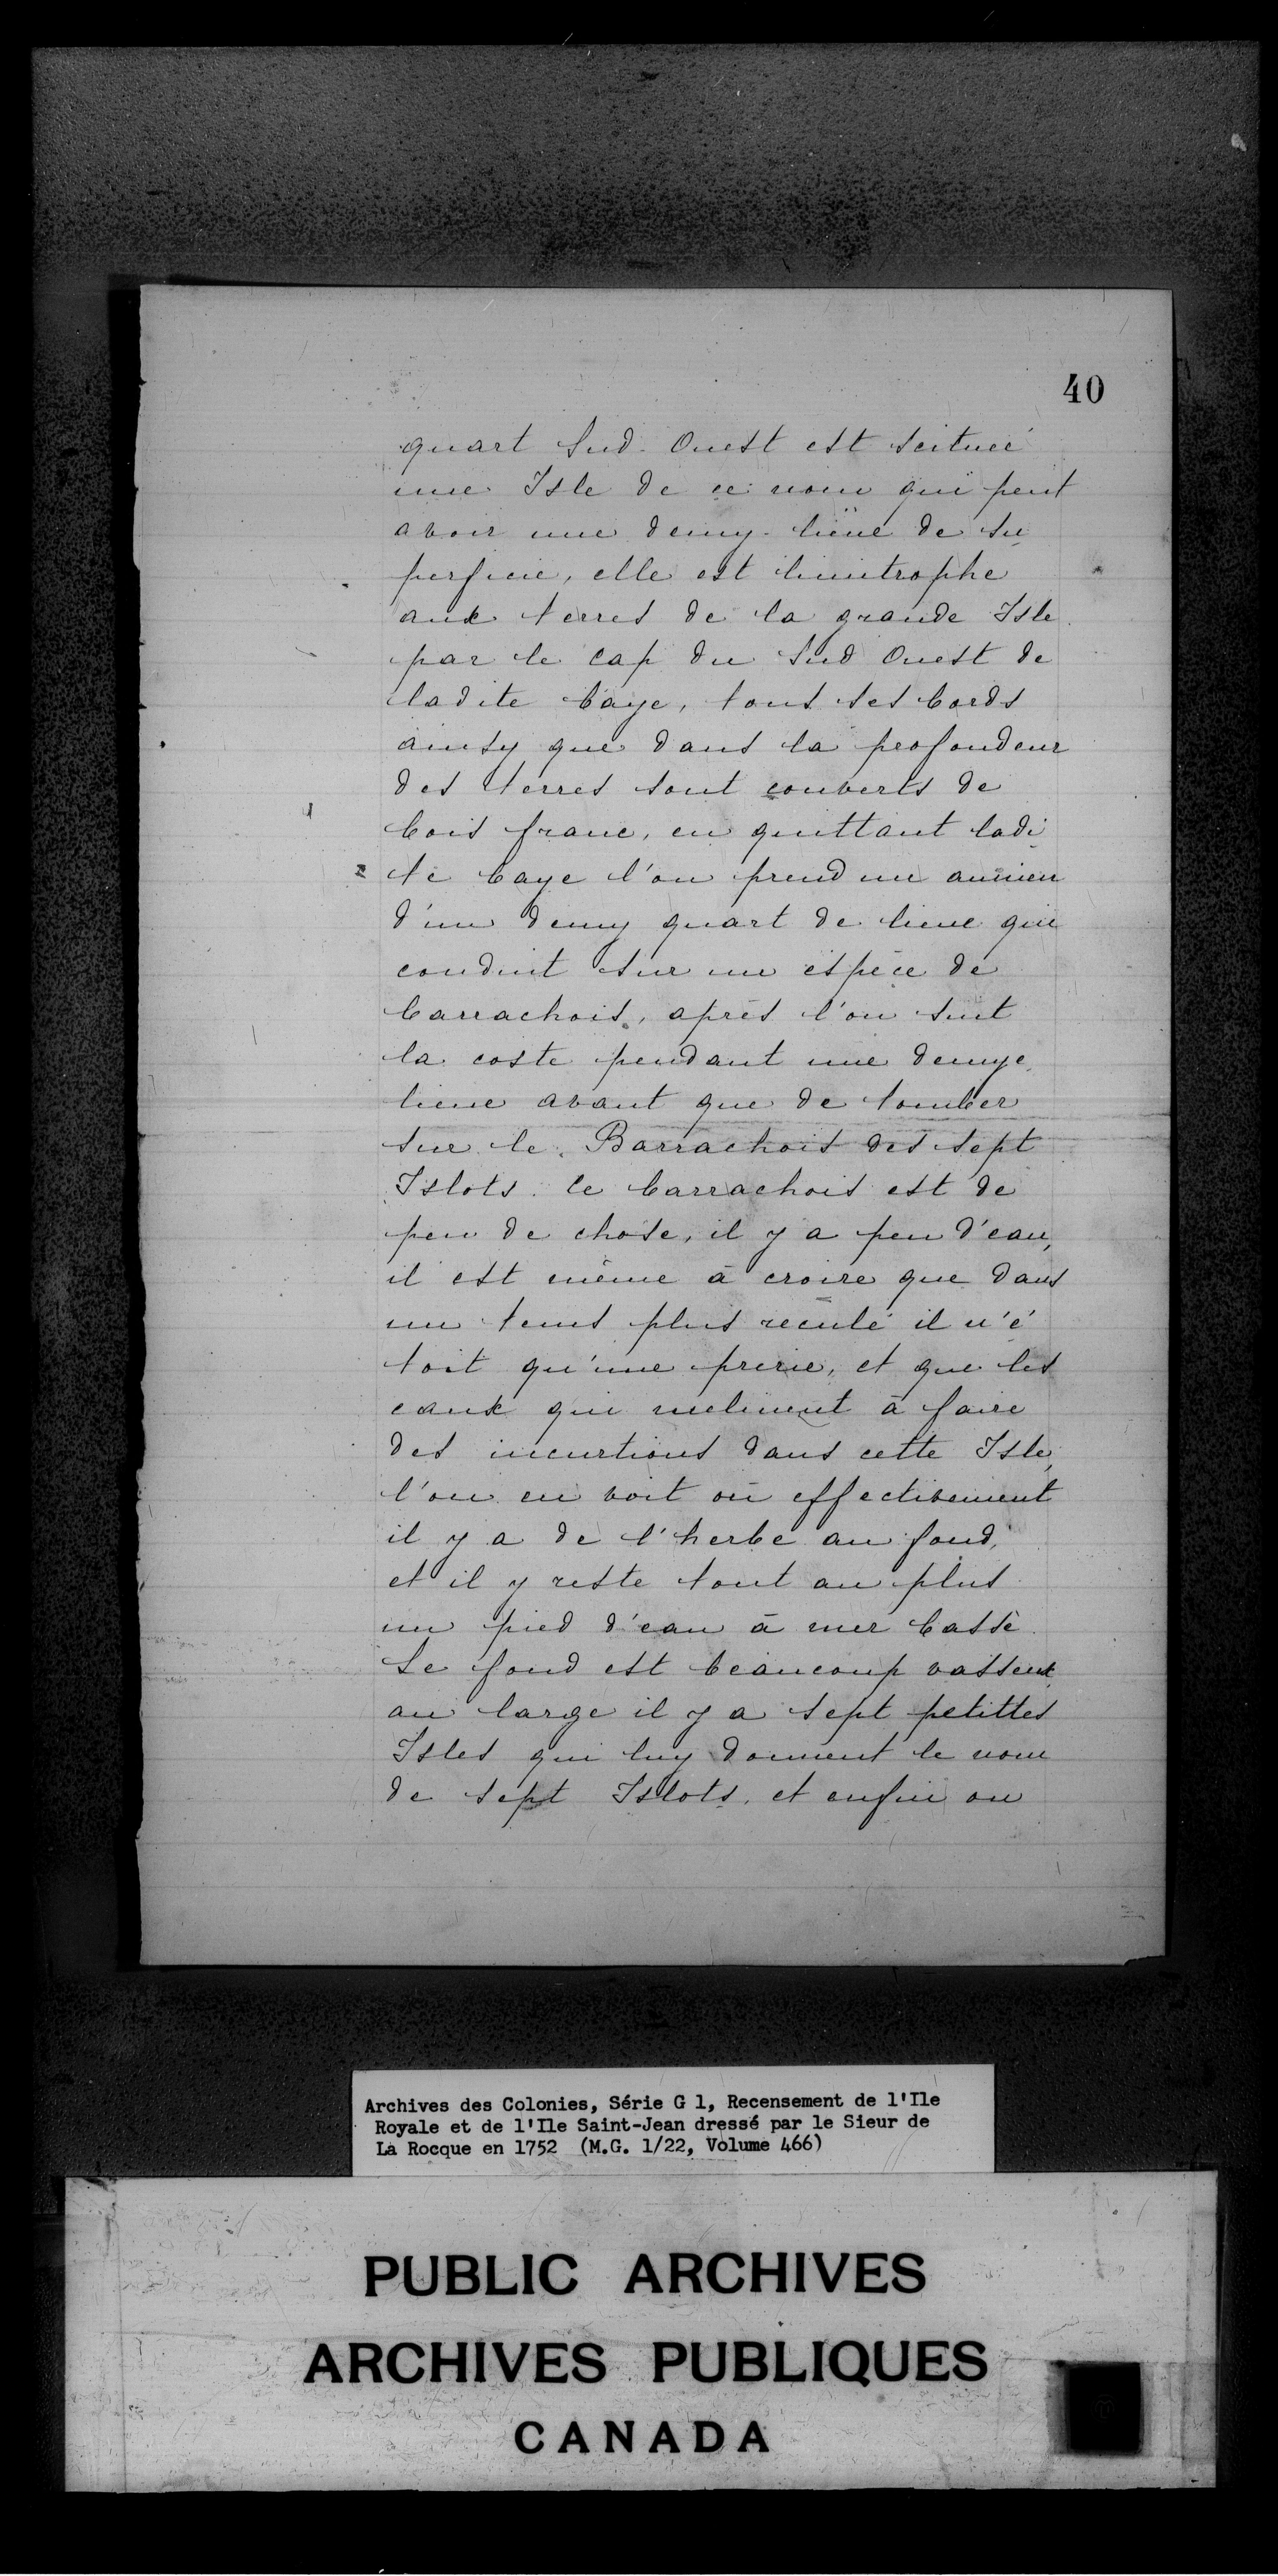 40
quart Sud-Ouest est scituée
une Isle de ce nom qui peut
avoir une demy-lieue de su
perficie, elle est limitrophe
aux terres de la grande Isle
par le cap du Sud Ouest de
ladite baye, tous ses bords
ainsy que dans la profondeur
des terres sont couverts de
bois franc, en quittant ladi
te baye l'on prend un
d'un demy quart de lieue qui
conduit sur une espèce de
barrachois, après l'on suit
la coste pendant une demye
lieue avant que de tomber
sur le Barrachois des sept
Islots. Ce barrachois est de
peu de chose, il y a peu d'eau,
il est même à croire que dans
un tems plus reculé il n'é
toit qu'une prerie, et que les
eaux qui inclinent à faire
des incurtions dans cette Isle,
l'on en voit où effectivement
il y a de l'herbe au fond,
et il y reste tout au plus
un pied d'eau à mer basse
Le fond est beaucoup vasseux
au large il y a sept petittes
Isles qui luy donnent le nom
de sept Islots, et enfin on
Archives des Colonies, Série G 1, Recensement de l'Ile
Royale et de l'Ile Saint-Jean dressé par le Sieur de
La Rocque en 1752 (M.G. 1/22, Volume 466)
PUBLIC ARCHIVES
ARCHIVES PUBLIQUES
CANADA